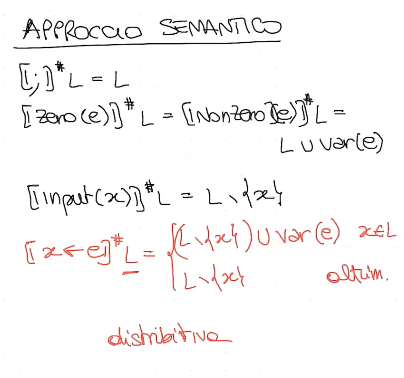 APPROCCIO SEMANTICO
⟦;⟧# L = L
⟦zero(e)⟧# L = ⟦Nonzero(e)⟧# L =
L ∪ var(e)
⟦input(x)⟧# L = L \ {x}
⟦x ← e⟧# L = { (L \ {x}) ∪ var(e) x ∈ L
L \ {x} altrim.
distribitiva